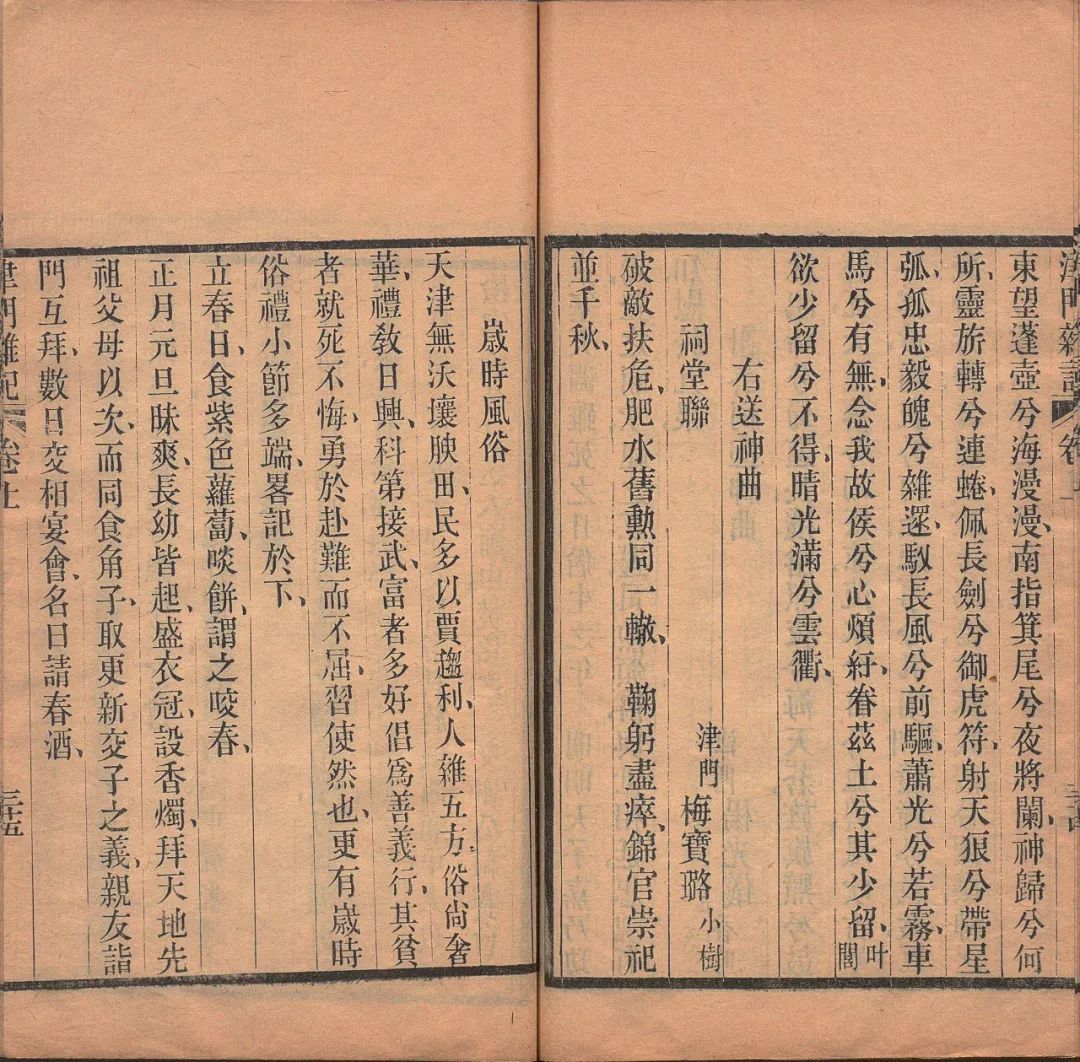 津門雜記 卷上
東望蓬壺兮海漫漫、南指箕尾兮夜將闌、神歸兮何
所、靈旂轉兮連蜷、佩長劍兮御虎符、射天狼兮帶星
弧、孤忠毅魄兮雜還、馭長風兮前驅、蕭光兮若霧、車
馬兮有無、念我故侯兮心煩紆、眷茲土兮其少留、叶閭
欲少留兮不得、晴光滿兮雲衢、
右送神曲
祠堂聯 津門 梅寶璐 小樹
破敵扶危、肥水舊勳同一轍、 鞠躬盡瘁、錦官崇祀
並千秋、
歲時風俗
天津無沃壤腴田、民多以賈趨利、人雜五方、俗尙奢
華、禮敎日興、科第接武、富者多好倡爲善義行、其貧
者就死不悔、勇於赴難而不屈、習使然也、更有歲時
俗禮小節多端、畧記於下、
立春日、食紫色蘿蔔、啖餅、謂之咬春、
正月元旦昧爽、長幼皆起、盛衣冠、設香燭、拜天地先
祖父母以次、而同食角子、取更新交子之義、親友詣
門互拜、數日交相宴會、名曰請春酒、
津門雜記 卷上 三五